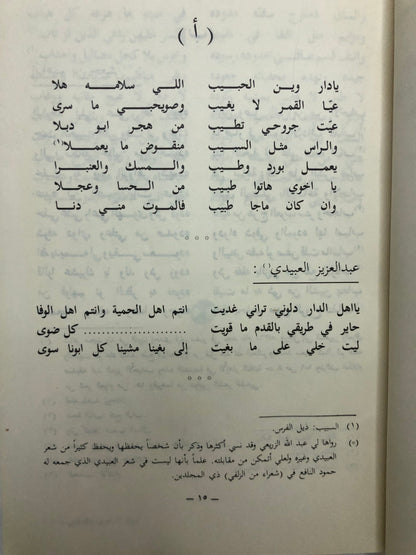 ( أ )
يادار وين الحبيب اللي سلامه هلا
عيّا القمر لا يغيب وصويحبي ما سرى
عيّت جروحي تطيب من هجر ابو دبلا
والراس مثل السبيب منقوض ما يعملا(١)
يعمل بورد وطيب والمسك والعنبرا
يا اخوي هاتوا طبيب من الحسا وعجلا
وان كان ماجا طبيب فالموت مني دنا
° ° °
عبدالعزيز العبيدي(*) :
يااهل الدار دلوني تراني غديت انتم اهل الحمية وانتم اهل الوفا
حاير في طريقي بالقدم ما قويت ........................ كل ضوى
ليت خلي على ما بغيت إلى بغينا مشينا كل ابونا سوى
° ° °
(١) السبيب: ذيل الفرس.
(*) رواها لي عبد الله الزريعي وقد نسي أكثرها وذكر بأن شخصاً يحفظها ويحفظ كثيراً من شعر
العبيدي وغيره ولعلي أتمكن من مقابلته. علماً بأنها ليست في شعر العبيدي الذي جمعه له
حمود النافع في (شعراء من الزلفي) ذي المجلدين.
— ١٥ —